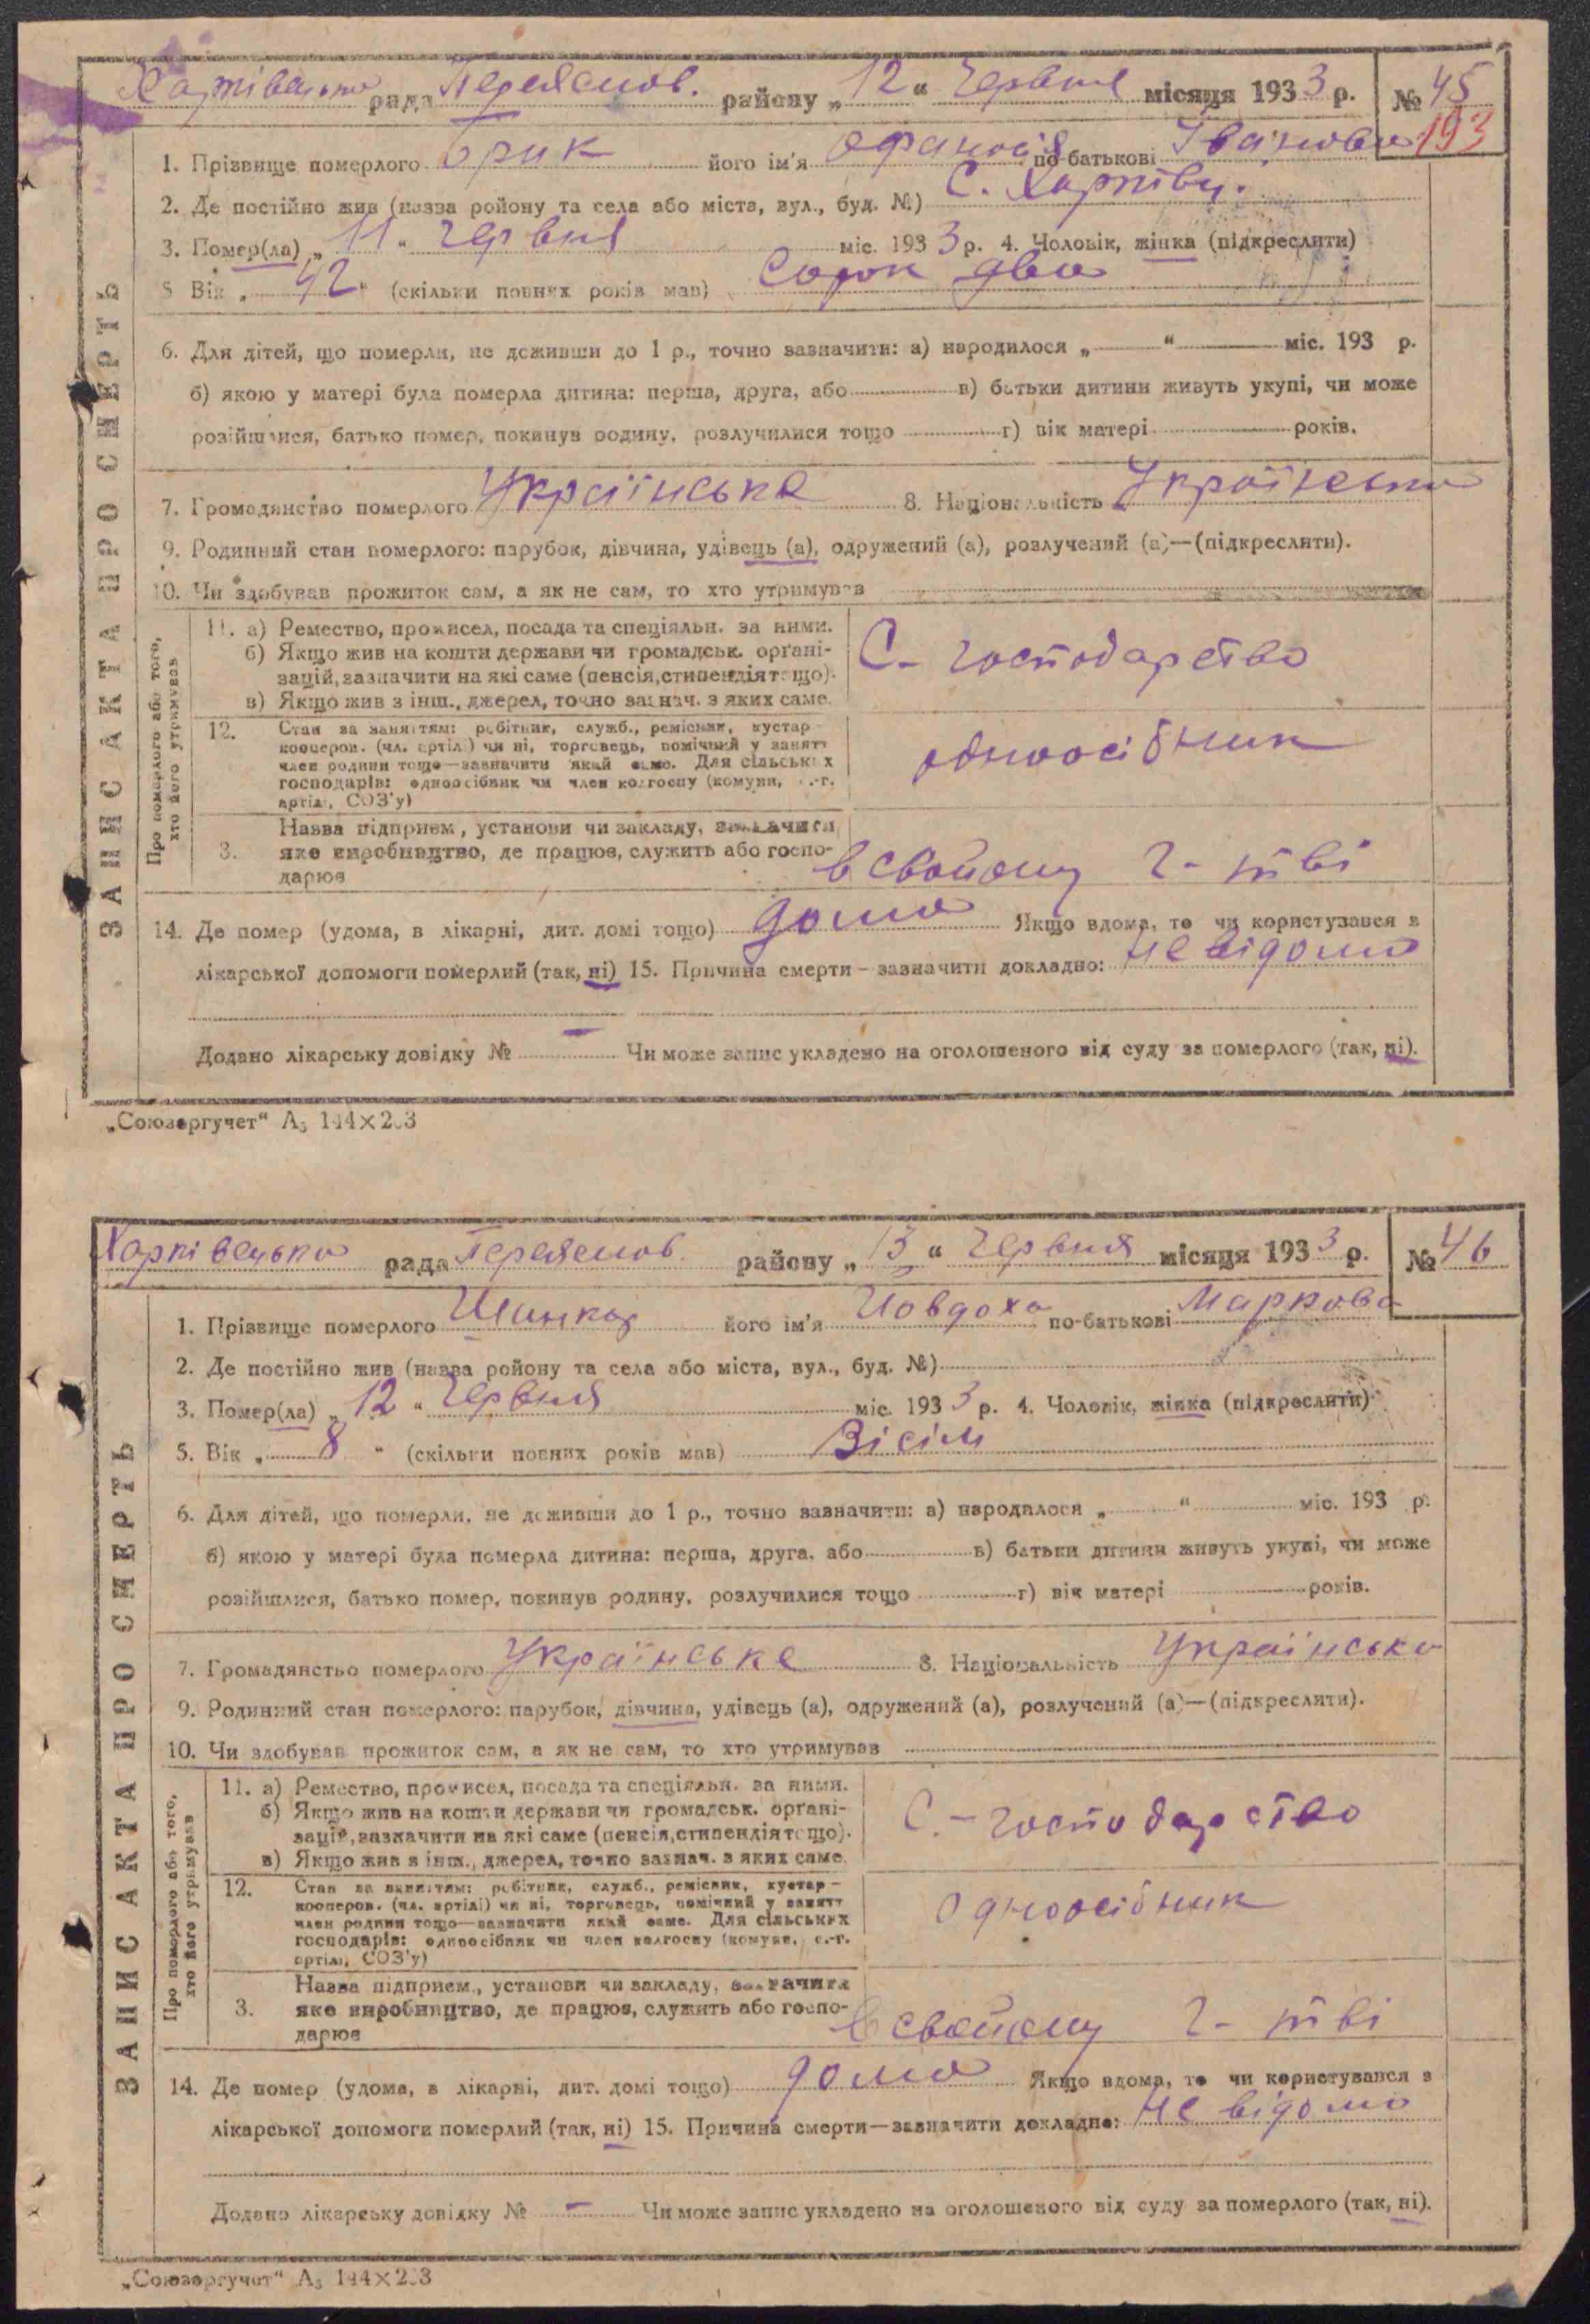 Харківецька рада Переяслов. району „12“ Червня місяця 1933 р. № 45
193
1. Прізвище померлого Брик його ім'я по-батькові Іванова
2. Де постійно жив (назва ройону та села або міста, вул., буд. №) С. Харківці.
3. Помер(ла) „11“ Червня міс. 1933 р. 4. Чоловік, жінка (підкреслити)
5 Вік „42“ (скільки повних років мав) Сорок два
6. Для дітей, що померли, не доживши до 1 р., точно зазначити: а) народилося „ “ міс. 193 р.
б) якою у матері була померла дитина: перша, друга, або в) батьки дитини живуть укупі, чи може
розійшлися, батько помер, покинув родину, розлучилися тощо г) вік матері років.
7. Громадянство померлого Українське 8. Національність Українська
9. Родинний стан померлого: парубок, дівчина, удівець (а), одружений (а), розлучений (а)—(підкреслити).
10. Чи здобував прожиток сам, а як не сам, то хто утримував
ЗАПИС АКТА ПРО СМЕРТЬ
Про померлого або того, хто його утримував
11. а) Ремество, промисел, посада та спеціяльн. за ними.
б) Якщо жив на кошти держави чи громадськ. орґані-
зацій, зазначити на які саме (пенсія, стипендія тощо).
в) Якщо жив з інш., джерел, точно зазнач. з яких саме.
С- господарство
12. Стан за заняттям: робітник, служб., ремісник, кустар-
кооперов. (чл. артілі) чи ні, торговець, помічний у занятт
член родини тощо—зазначити який саме. Для сільських
господарів: одноосібник чи член колгоспу (комуни, с.-г.
артілі, СОЗ'у)
одноосібник
3. Назва підприєм., установи чи закладу, зазначити
яке виробництво, де працює, служить або госпо-
дарює
в свойому г- тві
14. Де помер (удома, в лікарні, дит. домі тощо) дома Якщо вдома, то чи користувався з
лікарської допомоги померлий (так, ні) 15. Причина смерти – зазначити докладно: не відомо
Додано лікарську довідку № – Чи може запис укладено на оголошеного від суду за померлого (так, ні).
„Союзоргучет“ А₅ 144×203
Харківецька рада Переяслов. району „13“ Червня місяця 1933 р. № 46
1. Прізвище померлого Шинкар його ім'я Йовдоха по-батькові Маркова
2. Де постійно жив (назва ройону та села або міста, вул., буд. №)
3. Помер(ла) „12“ Червня міс. 1933 р. 4. Чоловік, жінка (підкреслити)
5. Вік „8“ (скільки повних років мав) Вісім
6. Для дітей, що померли, не доживши до 1 р., точно зазначити: а) народилося „ “ міс. 193 р.
б) якою у матері була померла дитина: перша, друга, або в) батьки дитини живуть укупі, чи може
розійшлися, батько помер, покинув родину, розлучилися тощо г) вік матері років.
7. Громадянство померлого Українське 8. Національність Українська
9. Родинний стан померлого: парубок, дівчина, удівець (а), одружений (а), розлучений (а)—(підкреслити).
10. Чи здобував прожиток сам, а як не сам, то хто утримував
ЗАПИС АКТА ПРО СМЕРТЬ
Про померлого або того, хто його утримував
11. а) Ремество, промисел, посада та спеціяльн. за ними.
б) Якщо жив на кошти держави чи громадськ. орґані-
зацій, зазначити на які саме (пенсія, стипендія тощо).
в) Якщо жив з інш., джерел, точно зазнач. з яких саме.
С.- господарство
12. Стан за заняттям: робітник, служб., ремісник, кустар-
кооперов. (чл. артілі) чи ні, торговець, помічний у занятт
член родини тощо—зазначити який саме. Для сільських
господарів: одноосібник чи член колгоспу (комуни, с.-г.
артілі, СОЗ'у)
одноосібник
3. Назва підприєм., установи чи закладу, зазначити
яке виробництво, де працює, служить або госпо-
дарює
в свойому г- тві
14. Де помер (удома, в лікарні, дит. домі тощо) дома Якщо вдома, то чи користувався з
лікарської допомоги померлий (так, ні) 15. Причина смерти—зазначити докладно: не відомо
Додано лікарську довідку № – Чи може запис укладено на оголошеного від суду за померлого (так, ні).
„Союзоргучет“ А₅ 144×203